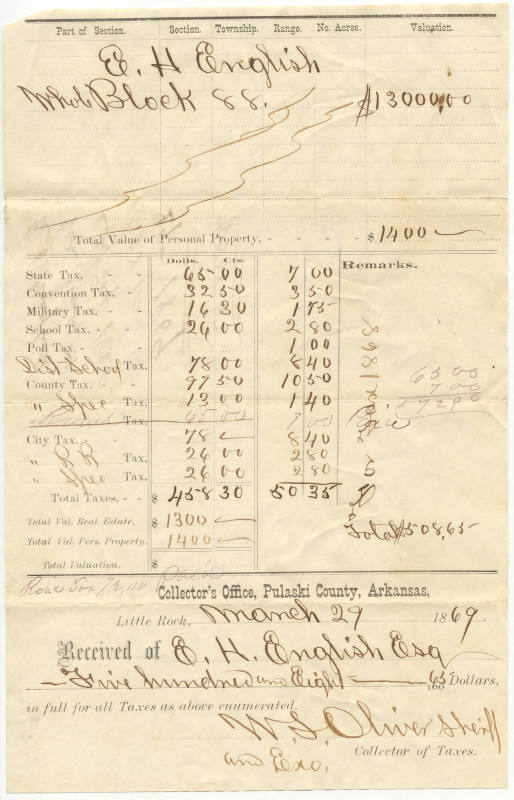 Part of Section. Section. Township. Range. No. Acres. Valuation.
E. H English
Whole Block 88. $13000,00
Total Value of Personal Property, - - - - $ 1400
Dolls. Cts. Remarks.
State Tax, - - 65 00 7 00
Convention Tax, - 32 50 3 50
Military Tax, - - 16 30 1 75
School Tax, - - 26 00 2 80
Poll Tax, - - 1 00
Dist School Tax, 78 00 8 40
County Tax, - - 97 50 10 50 65 00
" Spec Tax, 13 00 1 40 7 00
Tax, 65 00 7 00 72 00
City Tax, - - 78 8 40
" R R Tax, 26 00 2 80
" Spec Tax, 26 00 2 80
Total Taxes, - - $ 458 30 50 35
Total Val. Real Estate, - $ 1300
Total $508,65
Total Val. Pers. Property. 1400
Total Valuation, $
Tax
Collector's Office, Pulaski County, Arkansas,
Little Rock, March 29 1869
Received of E. H. English Esq
Five hundred and Eight 65/100 Dollars,
in full for all Taxes as above enumerated.
W. S. Oliver Sheriff
Collector of Taxes.
and Exo,